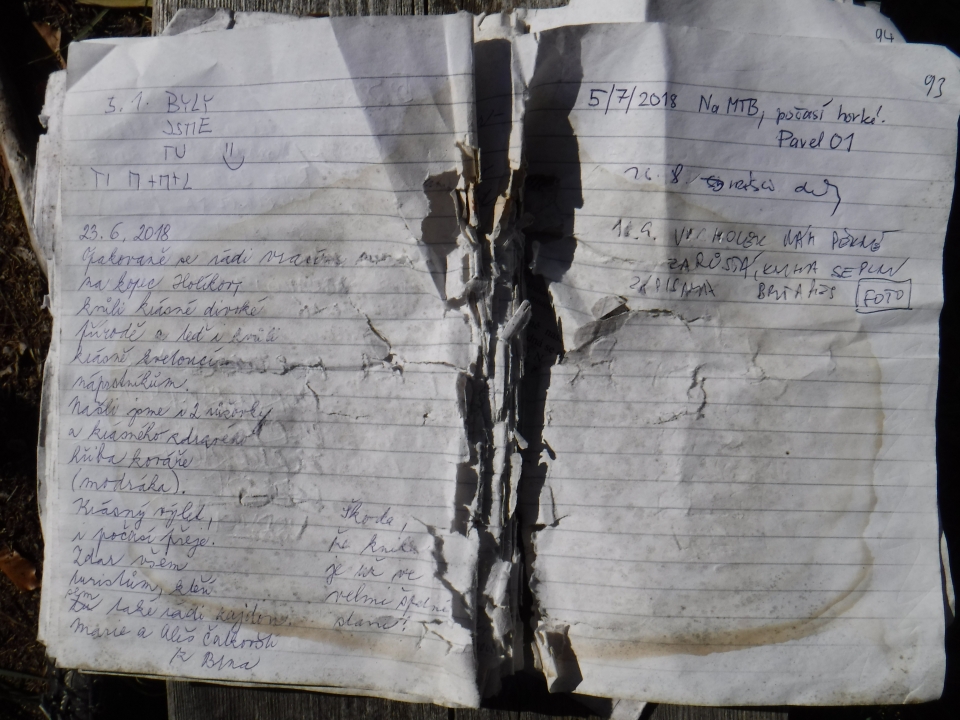 3. 1. BYLY
JSTE
TU
TI M+M+L
23. 6. 2018
Opakovaně se rádi
na kopec Holíkov
kvůli krásné divoké
přírodě a teď i kvůli
krásně kvetoucím
náprstníkům.
Našli jsme i 2 růžovky
a krásného zdravého
hřiba kováře
(modráka).
Krásný výlet,
i počasí přeje.
Zdar všem
turistům, kteří
sem také rádi zajdou
Marie a Aleš
z Brna
Škoda,
že kniha
je už ve
velmi špatném
stavu!
94
93
5/7/2018 Na MTB, počasí horké!
Pavel 01
16. 8.
16. 9. VRCHOLEK NÁM PĚKNĚ
ZARŮSTÁ, KNIHA SE PLNÍ
FOTO